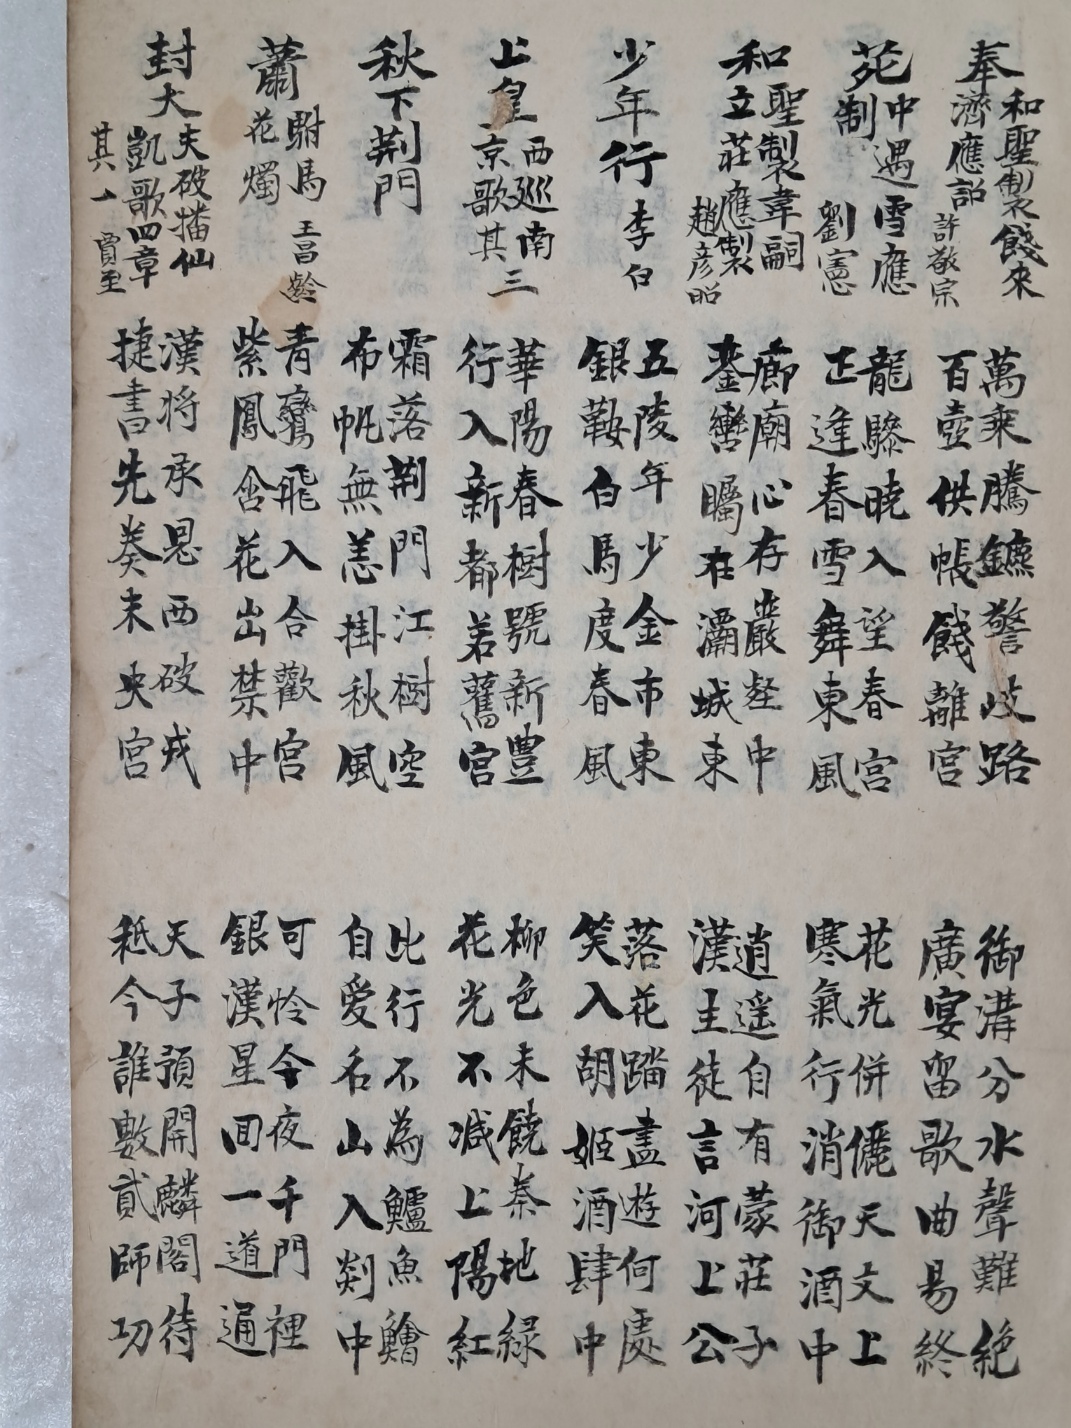 奉和聖製餞來
濟應詔
許敬宗
萬乘騰鑣警岐路
百壺供帳餞離宮
御溝分水聲難絶
廣宴留歌曲易終
苑中遇雪應
制
劉憲
龍驂曉入望春宮
正逢春雪舞東風
花光併儷天文上
寒氣行消御酒中
和聖製韋嗣
立莊應製
趙彦昭
廊廟心存巖壑中
鑾輿矚在灞城東
逍遥自有蒙莊子
漢主徒言河上公
少年行
李白
五陵年少金市東
銀鞍白馬度春風
落花踏盡遊何處
笑入胡姬酒肆中
上皇西巡南
京歌其三
華陽春樹號新豊
行入新都若舊宮
柳色未饒秦地緑
花光不减上陽紅
秋下荆門
霜落荆門江樹空
布帆無恙掛秋風
比行不為鱸魚鱠
自愛名山入剡中
蕭駙馬
花燭
王昌齡
青鸞飛入合歡宮
紫鳳含花出禁中
可怜今夜千門裡
銀漢星回一道通
封大夫破播仙
凱歌四章
其一
賈至
漢将承恩西破戎
捷書先奏未央宮
天子預開麟閣待
秪今誰數貳師功